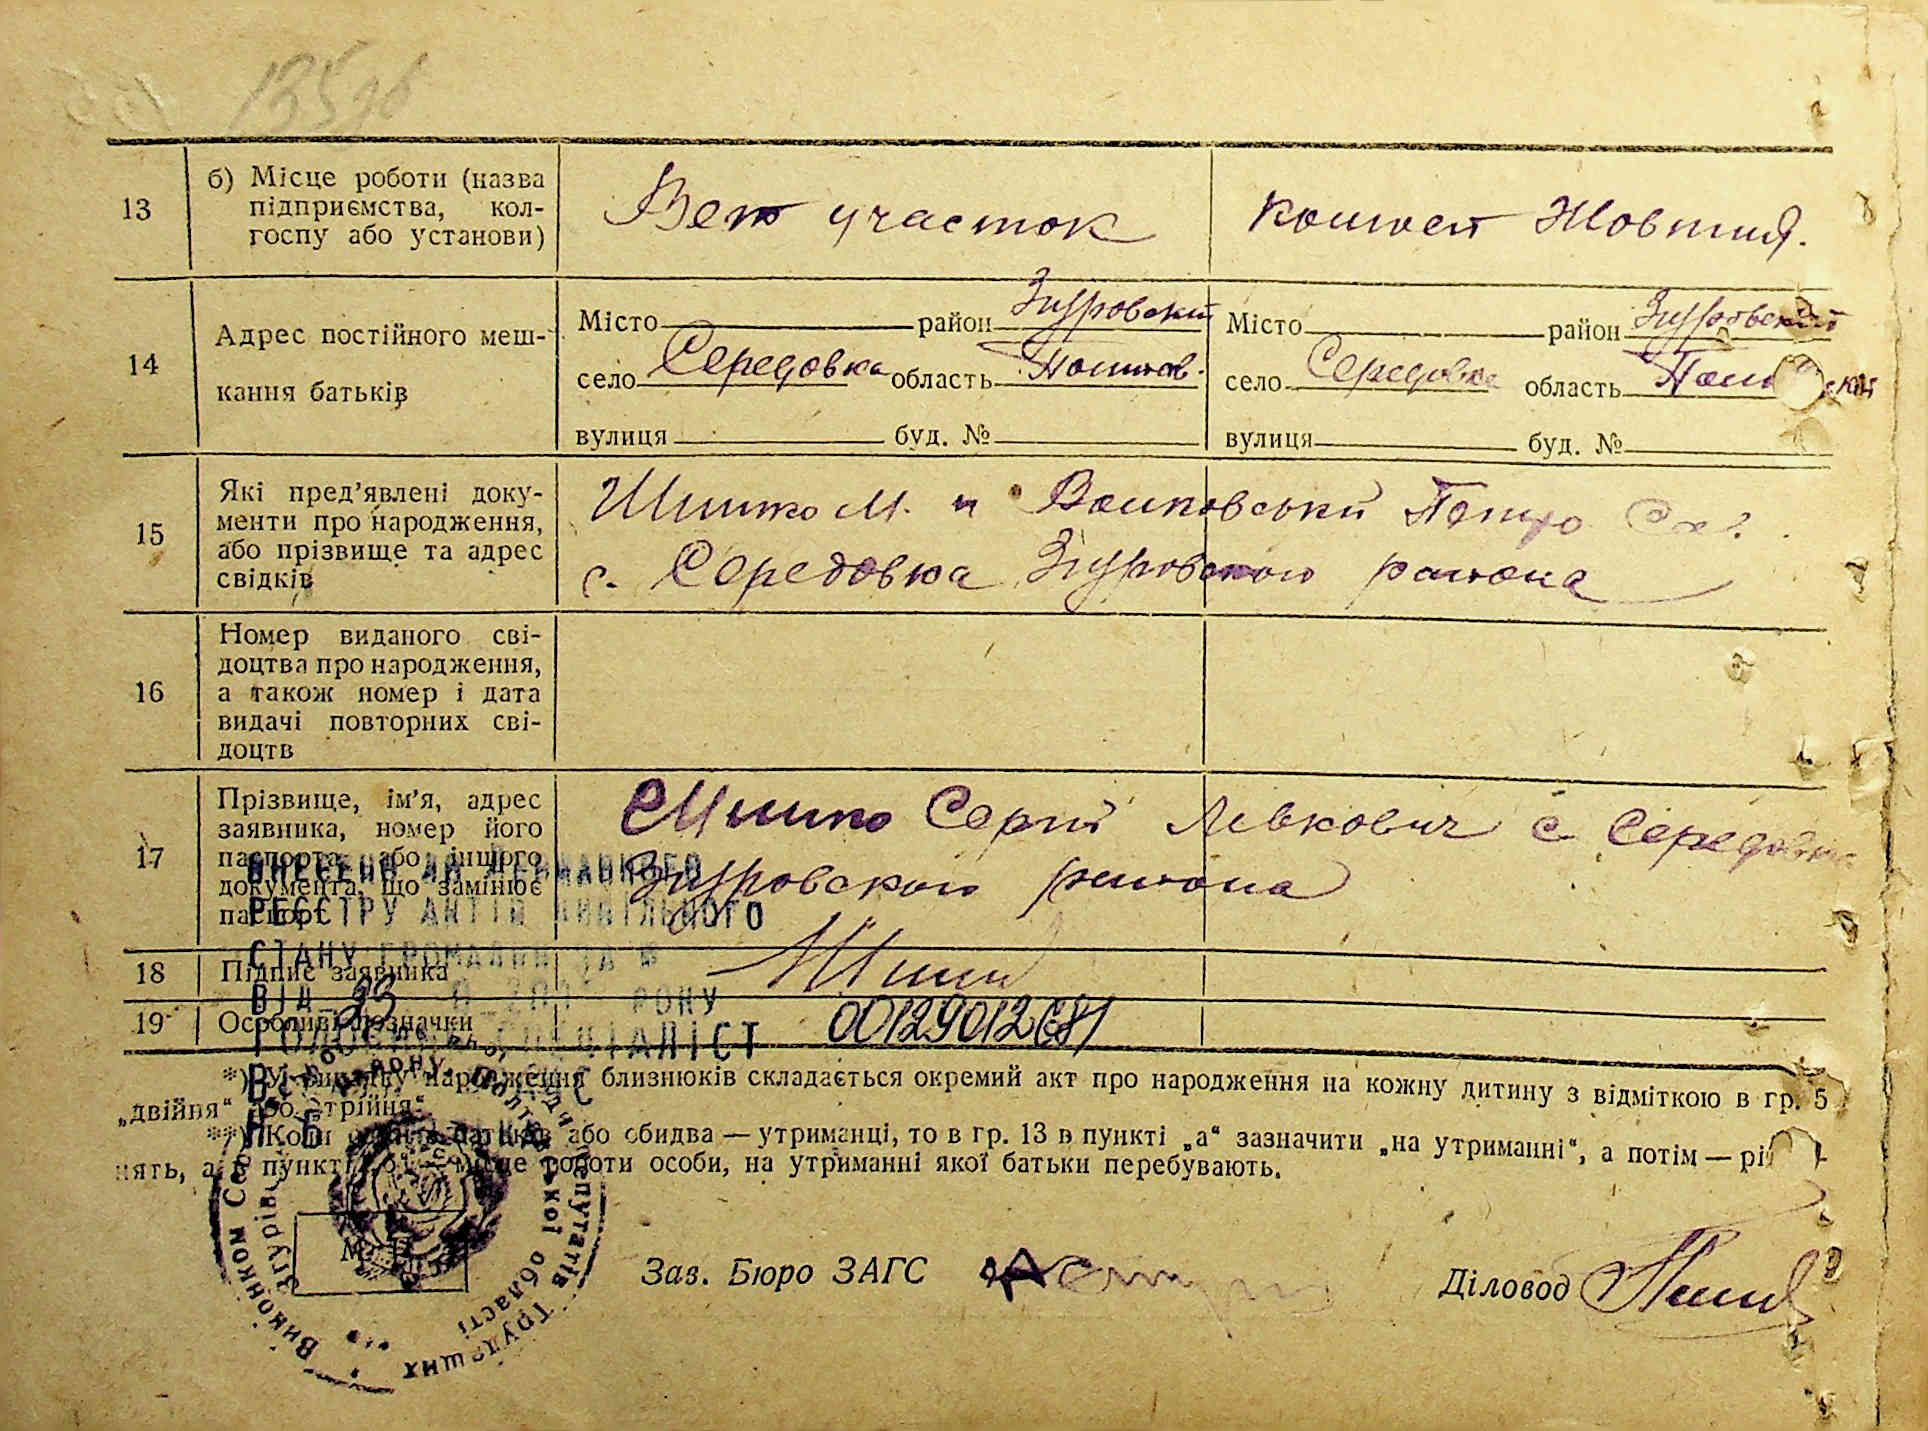 135 зв
13
б) Місце роботи (назва
підприємства, кол-
госпу або установи)
Вет участок
колгосп Жовтня.
14
Адрес постійного меш-
кання батьків
Місто район Згуровский
село Середовка область Полтав.
вулиця буд. №
Місто район Згуровский
село Середовка область
вулиця буд. №
15
Які пред'явлені доку-
менти про народження,
або прізвище та адрес
свідків
Шишко М. и Волковський Петро
с. Середовка Згуровского района
16
Номер виданого сві-
доцтва про народження,
а також номер і дата
видачі повторних сві-
доцтв
17
Прізвище, ім'я, адрес
заявника, номер його
паспорта або іншого
документа, що замінює
паспорт
Шишко Сергій Левкович с Середовка
Згуровского района
ВНЕСЕНО ДО ДЕРЖАВНОГО
РЕЄСТРУ АКТІВ ЦИВІЛЬНОГО
СТАНУ ГРОМАДЯН ЗА №
ВІД 23 РОКУ
ГОЛОВНИЙ СПЕЦІАЛІСТ
18
Підпис заявника
19
Особливі позначки
00129012681
*) У випадку народження близнюків складається окремий акт про народження на кожну дитину з відміткою в гр. 5
„двійня“ або „трійня“.
**) Коли один з батьків або обидва — утриманці, то в гр. 13 в пункті „а“ зазначити „на утриманні“, а потім — рід
нять, а в пункті „б“ — місце роботи особи, на утриманні якої батьки перебувають.
М. П.
Виконком Згурівської районної депутатів трудящих
Полтавської області
Зав. Бюро ЗАГС
Діловод